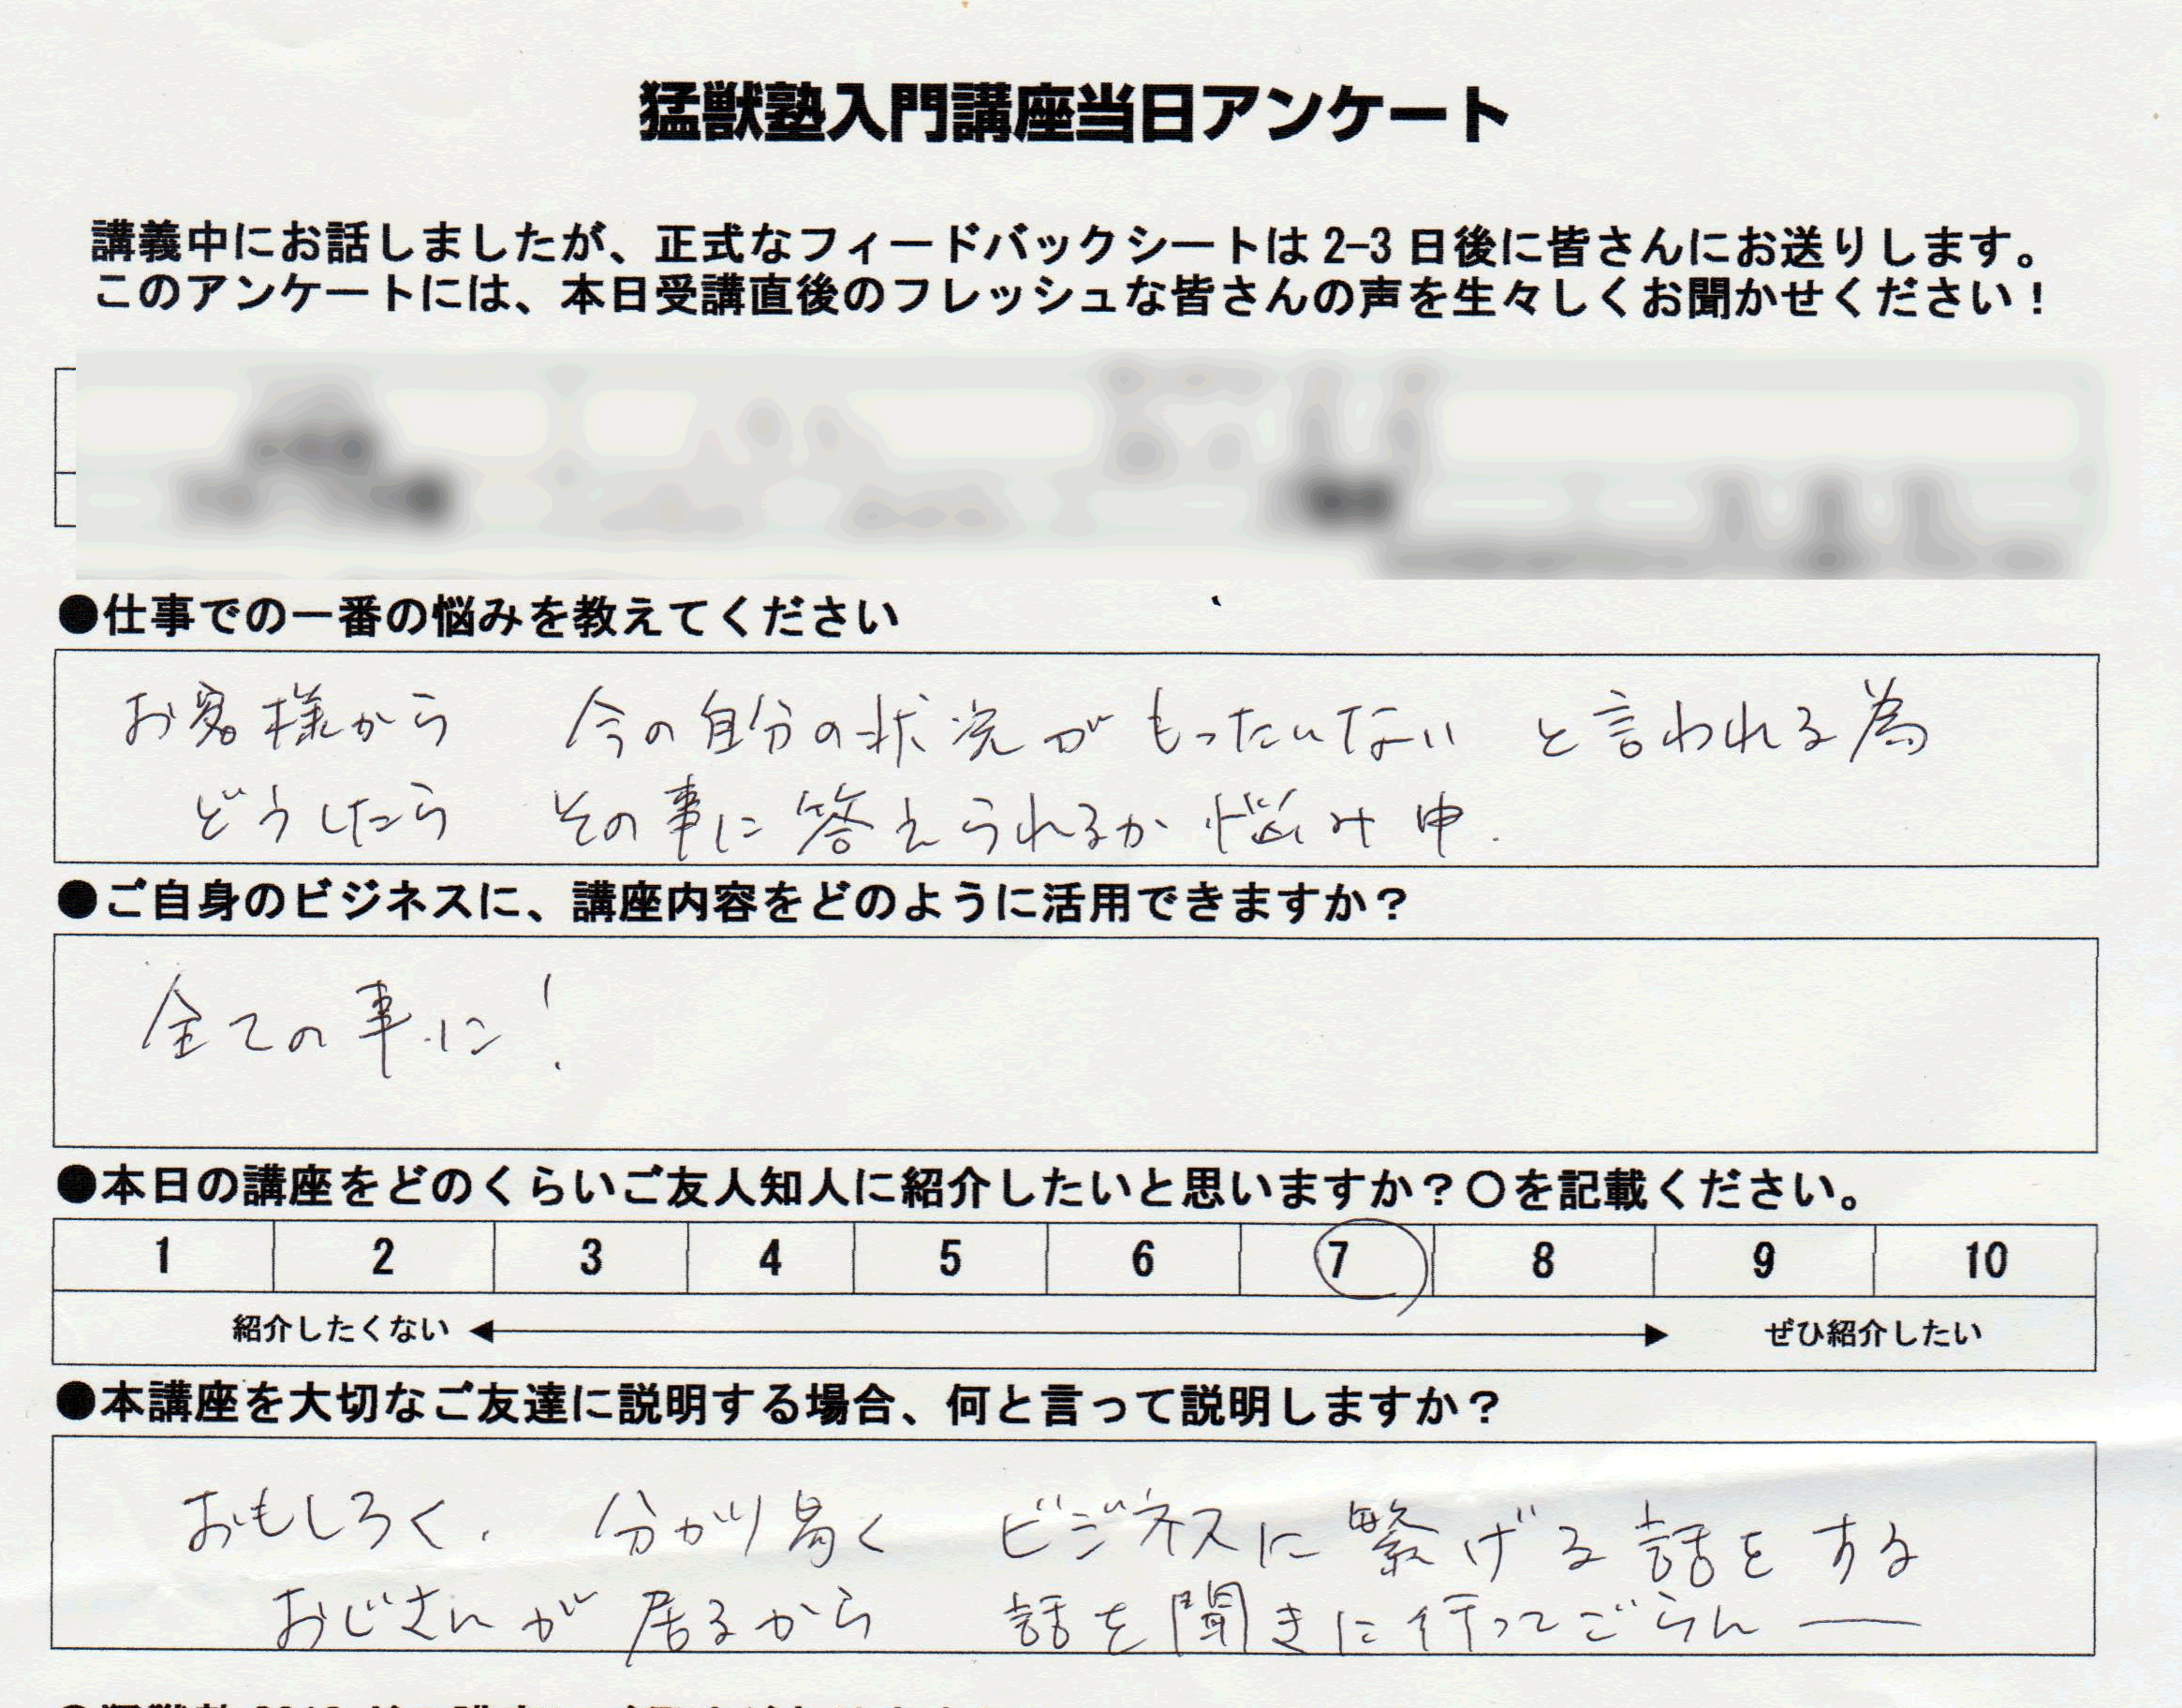 猛獣塾入門講座当日アンケート
講義中にお話しましたが、正式なフィードバックシートは2-3日後に皆さんにお送りします。
このアンケートには、本日受講直後のフレッシュな皆さんの声を生々しくお聞かせください！
●仕事での一番の悩みを教えてください
お客様から　今の自分の状況がもったいない　と言われる為
どうしたら　その事に答えられるか悩み中.
●ご自身のビジネスに、講座内容をどのように活用できますか？
全ての事に！
●本日の講座をどのくらいご友人知人に紹介したいと思いますか？〇を記載ください。
1 2 3 4 5 6 7 8 9 10
紹介したくない ぜひ紹介したい
●本講座を大切なご友達に説明する場合、何と言って説明しますか？
おもしろく、　分かり易く　ビジネスに繋げる話をする
おじさんが居るから　話を聞きに行ってごらんー